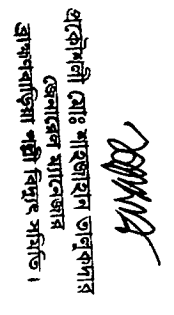 প্রকৌশলী মোঃ শাহজাহান তালুকদার
জেনারেল ম্যানেজার
ব্রাহ্মণবাড়িয়া পল্লী বিদ্যুৎ সমিতি।